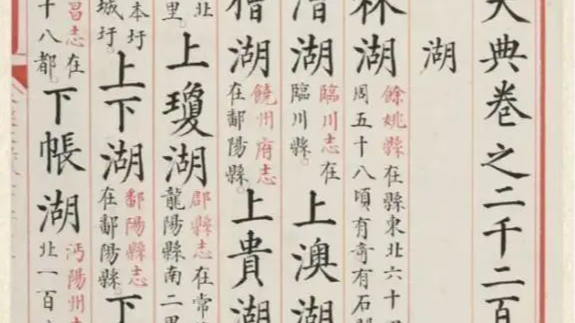 大典卷之二千二百
湖
林湖餘姚縣在縣東北六十
周五十八頃有奇有石
湖臨川志在
臨川縣。上澳湖
湖饒州府志
在鄱陽縣。上貴湖
北
里。上瓊湖郡縣志在常
龍陽縣南二里
本圩
城圩上下湖鄱陽縣志
在鄱陽縣。下
昌志在
十八都。下帳湖沔陽州
北一百